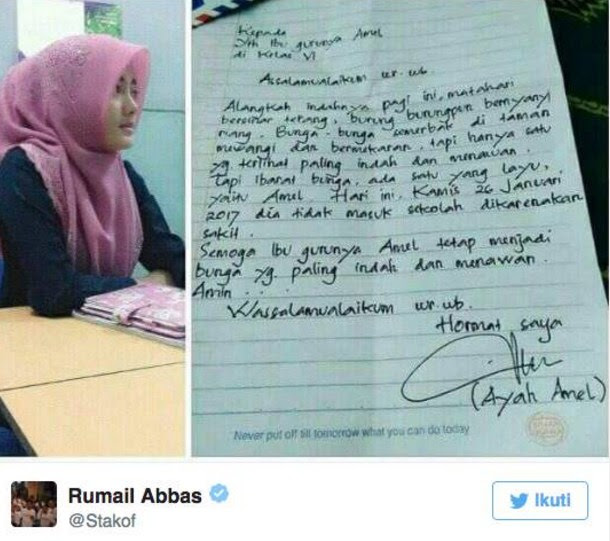 Kepada
Yth Ibu gurunya Amel
di Kelas VI
Assalamualaikum wr.wb
Alangkah indahnya pagi ini, matahari
bersinar terang, burung burungpun bernyanyi
riang. Bunga-bunga semerbak di taman
mewangi dan bermekaran, tapi hanya satu
yg terlihat paling indah dan menawan.
Tapi ibarat bunga, ada satu yang layu,
yaitu Amel. Hari ini, Kamis 26 Januari
2017 dia tidak masuk sekolah dikarenakan
sakit.
Semoga Ibu gurunya Amel tetap menjadi
bunga yg paling indah dan menawan.
Amin...
Wassalamualaikum wr.wb.
Hormat saya
(Ayah Amel)
Never put off till tomorrow what you can do today
Rumail Abbas
@Stakof
Ikuti